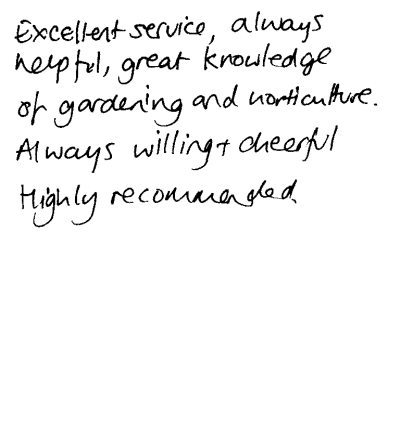 Excellent service, always
helpful, great knowledge
of gardening and horticulture.
Always willing + cheerful
Highly recommended.